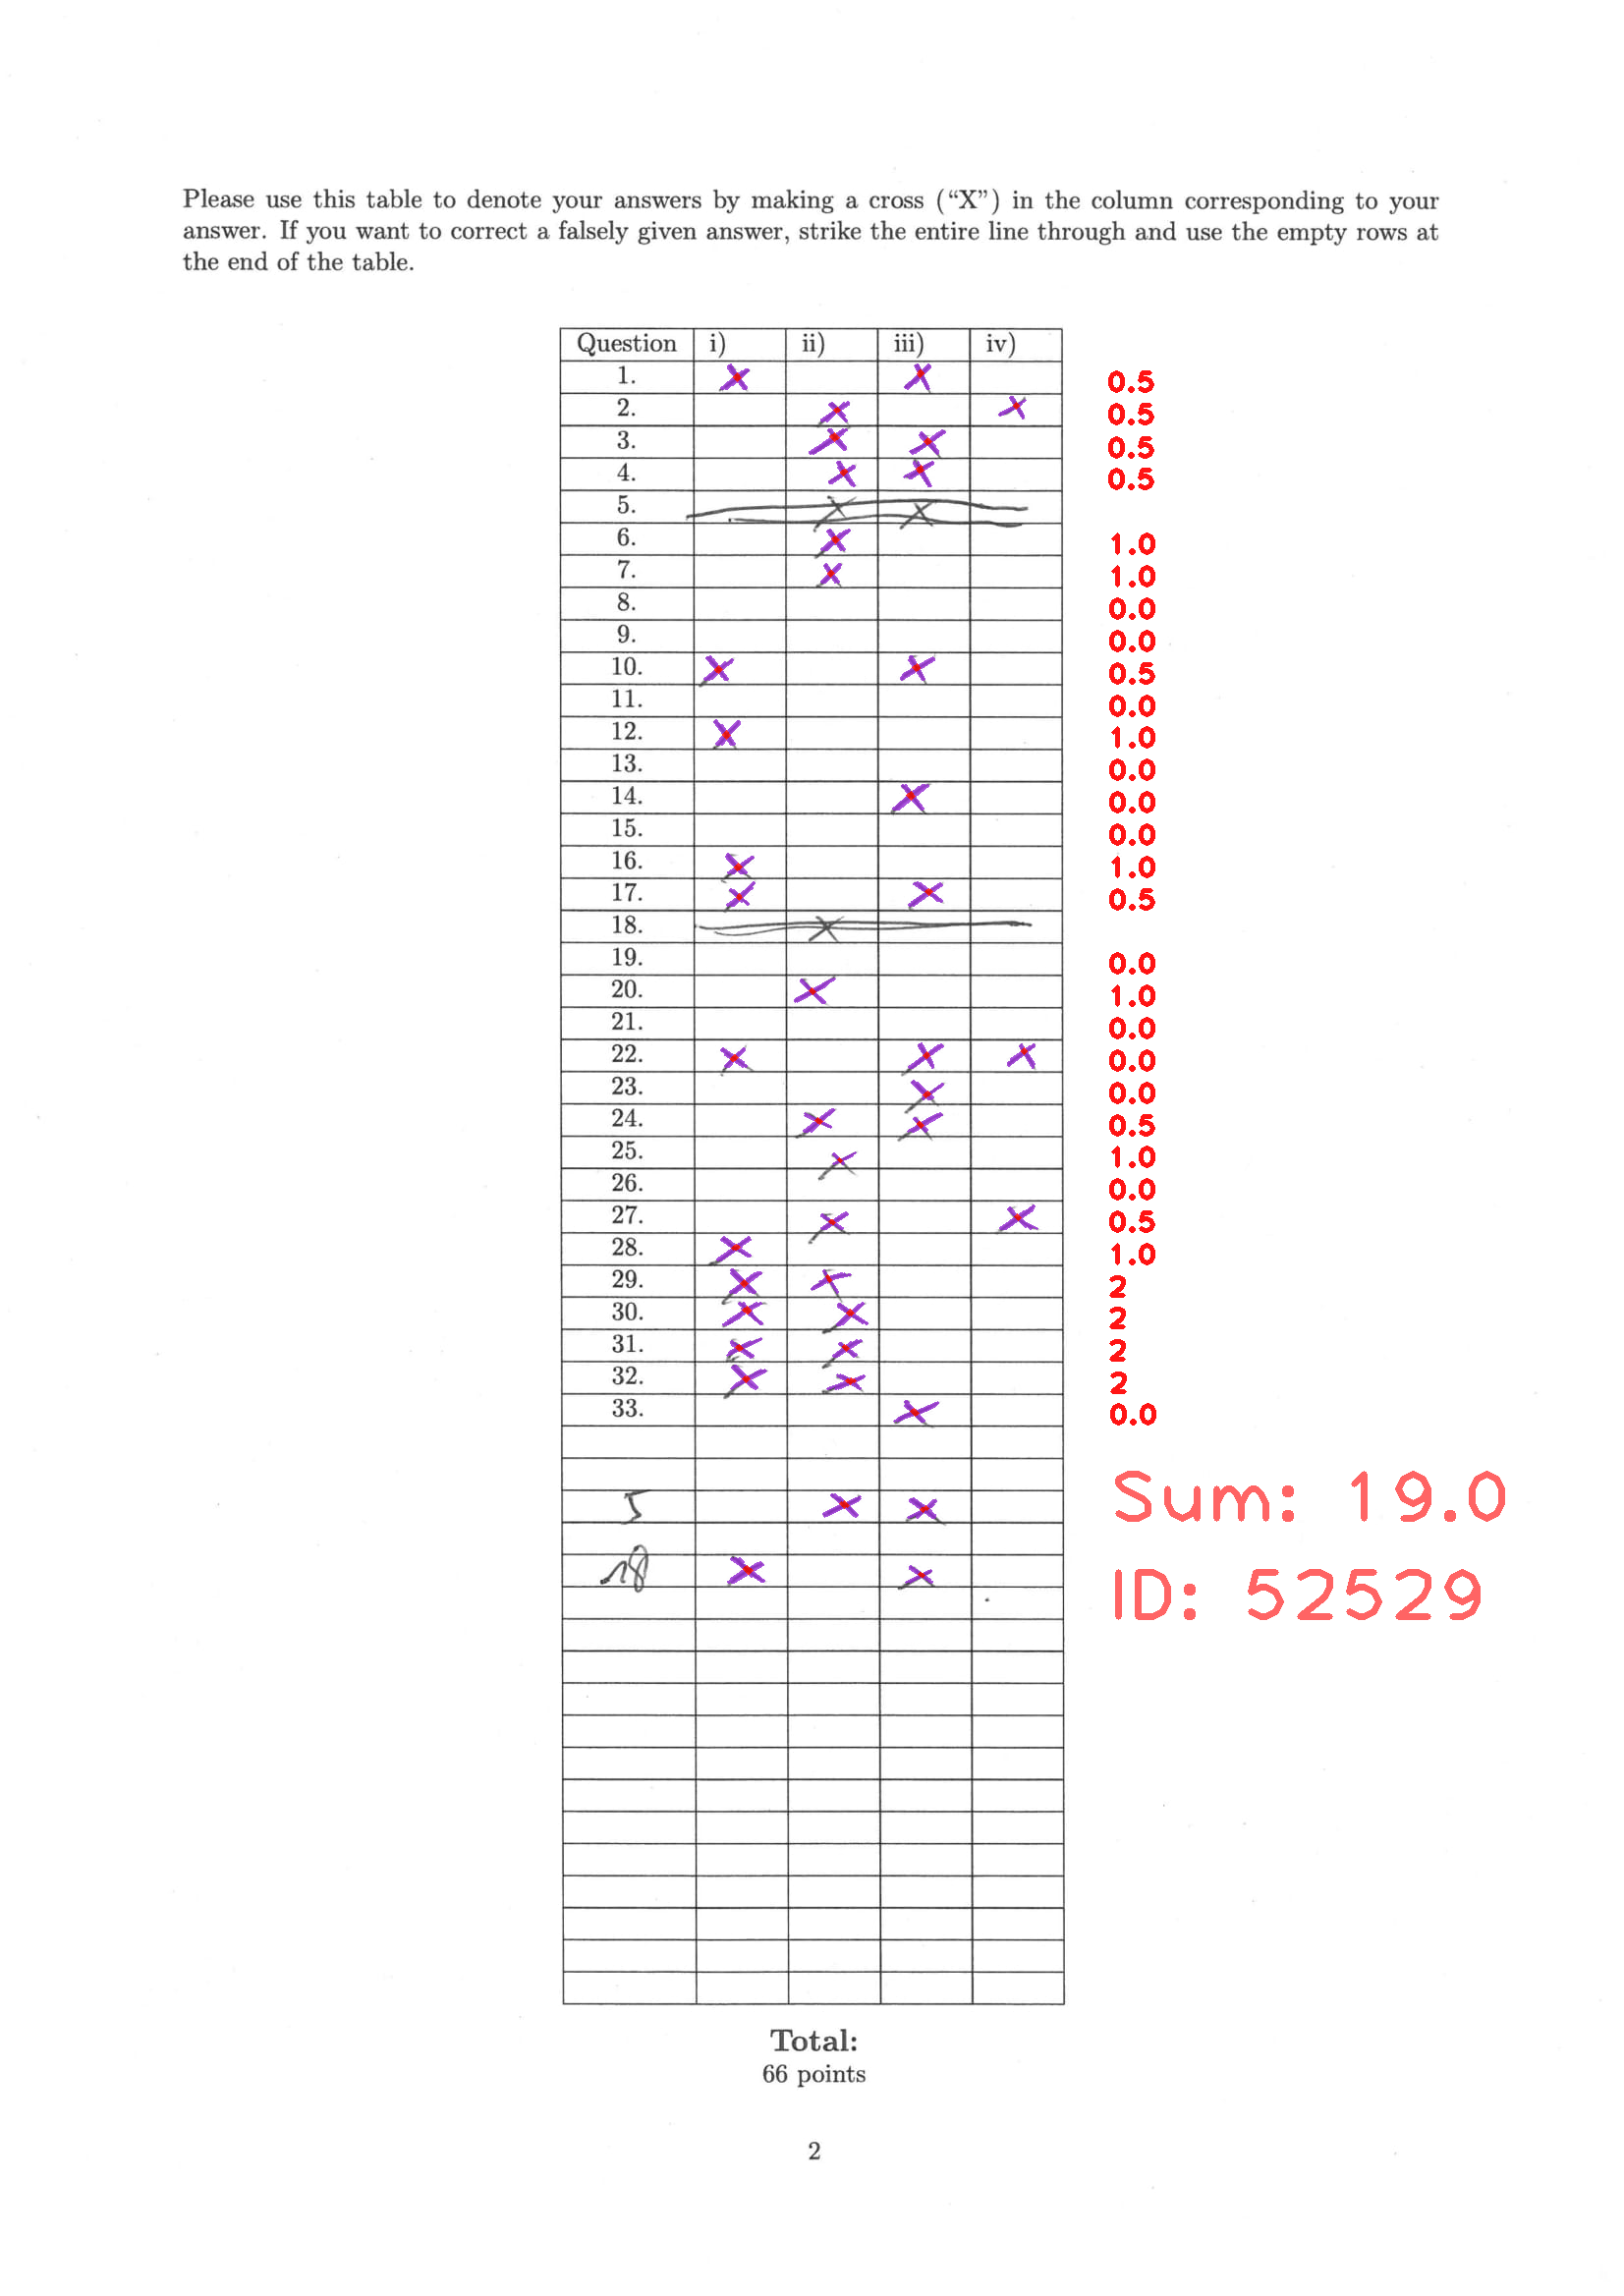 Please use this table to denote your answers by making a cross (“X”) in the column corresponding to your
answer. If you want to correct a falsely given answer, strike the entire line through and use the empty rows at
the end of the table.
Question i) ii) iii) iv)
1. X X 0.5
2. X X 0.5
3. X X 0.5
4. X X 0.5
5. X X
6. X 1.0
7. X 1.0
8. 0.0
9. 0.0
10. X X 0.5
11. 0.0
12. X 1.0
13. 0.0
14. X 0.0
15. 0.0
16. X 1.0
17. X X 0.5
18. X
19. 0.0
20. X 1.0
21. 0.0
22. X X X 0.0
23. X 0.0
24. X X 0.5
25. X 1.0
26. 0.0
27. X X 0.5
28. X 1.0
29. X X 2
30. X X 2
31. X X 2
32. X X 2
33. X 0.0
5 X X
Sum: 19.0
18 X X
ID: 52529
Total:
66 points
2